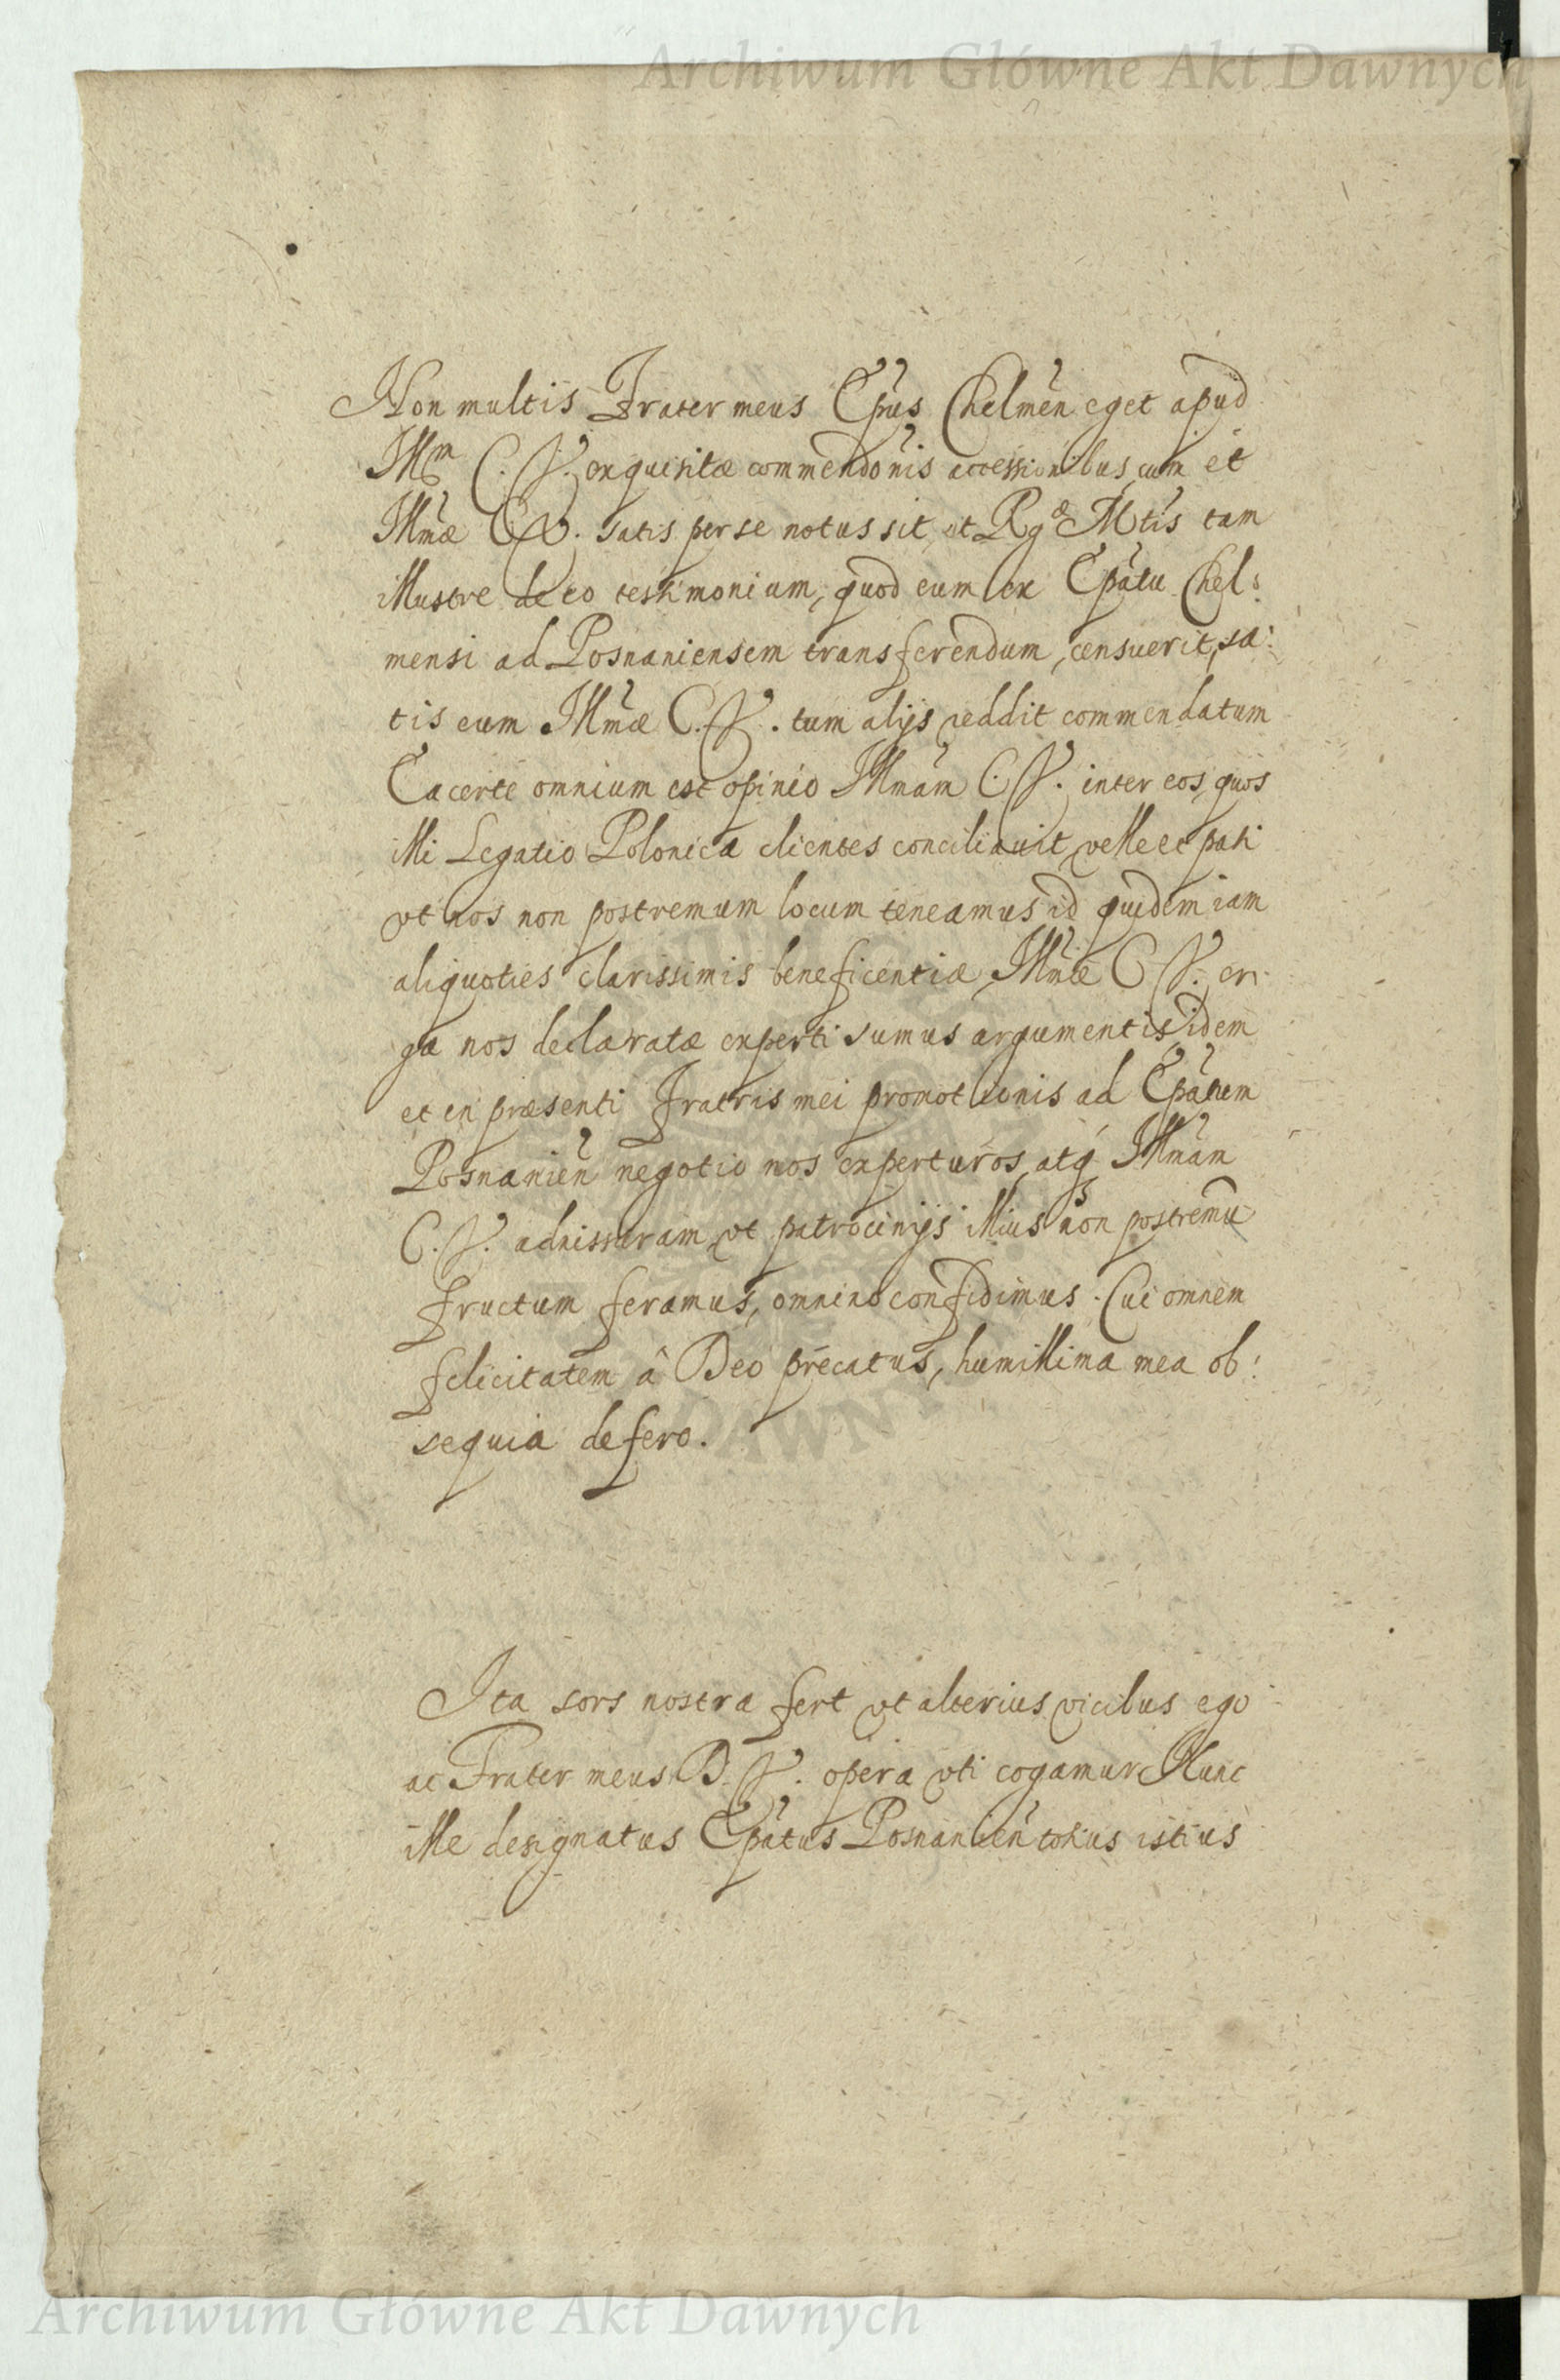 Archiwum Główne Akt Dawnych
Non multis Frater meus Epũs Chelmeñ eget apud
Illm C. V. exquisitæ commendõnis accessionibus, cum et
Illmæ C. V. satis per se notus sit, et Rgæ Mtis tam
illustre de eo testimonium, quod eum ex Epãtu Chel:
mensi ad Posnaniensem transferendum, censuerit, sa:
tis eum Illmæ C. V. tum alijs reddit commendatum
Ea certè omnium est opinio Illmam C. V. inter eos, quos
illi Legatio Polonica clientes conciliauit, velle et pati
vt nos non postremum locum teneamus id quidem iam
aliquoties clarissimis beneficentiæ Illmæ C. V. er:
ga nos declaratæ experti sumus argumentis, idem
et in præsenti Fratris mei promotionis ad Epãtum
Posnanieñ negotio nos experturos, atq́ Illmam
C. V. adnissuram, vt patrocinijs illius non postremũ
fructum feramus, omnino confidimus. Cui omnem
felicitatem â Deo precatus, humillima mea ob:
sequia defero.
Ita sors nostra fert vt alterius vicibus ego
ac Frater meus D. V. opera vti cogamur Nunc
ille designatus Epãtus Posnanieñ totius istius
Archiwum Główne Akt Dawnych